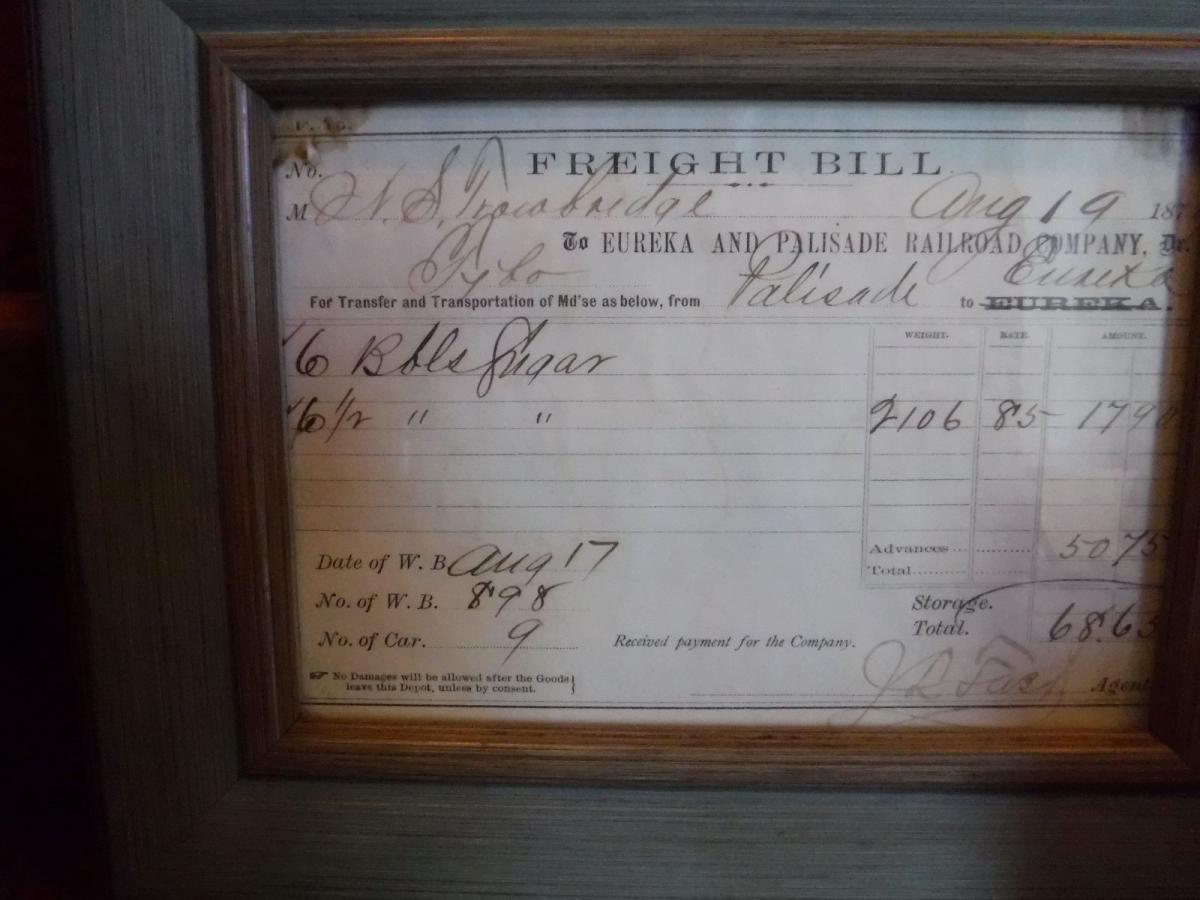 F. 75.
FREIGHT BILL.
No.
M N. S. Trowbridge Aug 19 187
To EUREKA AND PALISADE RAILROAD COMPANY, Dr.
Tybo Eureka
For Transfer and Transportation of Md'se as below, from Palisade to EUREKA.
WEIGHT. RATE. AMOUNT.
6 Bbls Sugar
6 1/2 " " 2106 85 1790
Advances 50 75
Total
Date of W. B. Aug 17
No. of W. B. 898 Storage.
Total. 68.65
No. of Car. 9 Received payment for the Company.
No Damages will be allowed after the Goods
leave this Depot, unless by consent. Agent